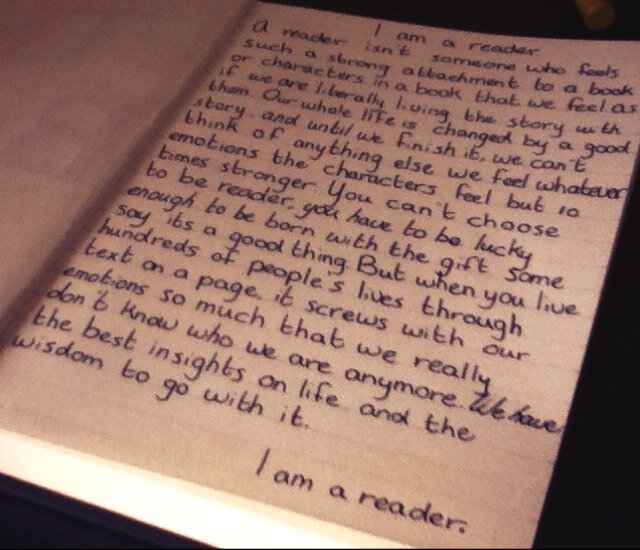 I am a reader
A reader isn't someone who feels
such a strong attachment to a book
or characters in a book that we feel as
if we are literally living the story with
them. Our whole life is changed by a good
story and until we finish it, we can't
think of anything else we feel whatever
emotions the characters feel but 10
times stronger You can't choose
to be reader, you have to be lucky
enough to be born with the gift some
say its a good thing. But when you live
hundreds of people's lives through
text on a page, it screws with our
emotions so much that we really
don't know who we are anymore. We have
the best insights on life and the
wisdom to go with it.
I am a reader.